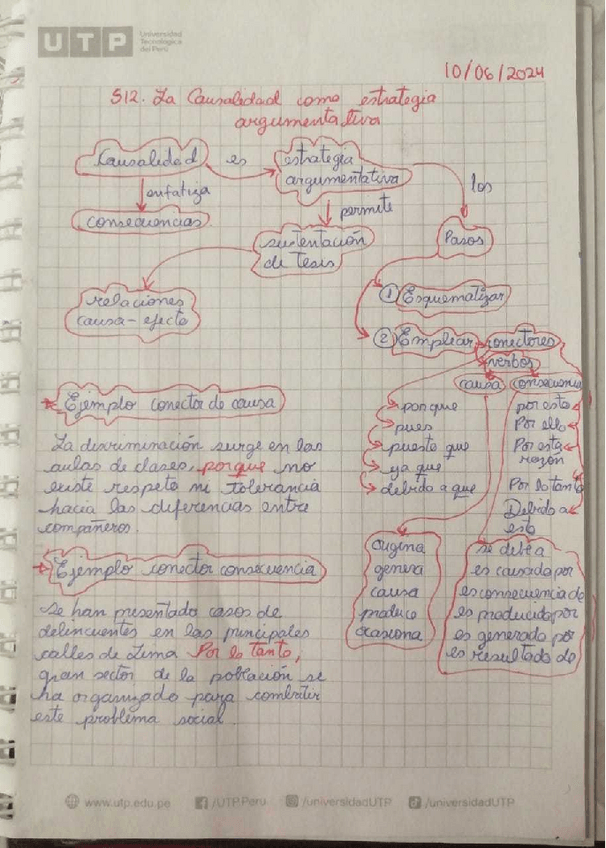 UTP
Universidad
Tecnológica
del Perú
10/06/2024
S12. La Causalidad como estrategia
argumentativa
Causalidad
es
estrategia
argumentativa
los
enfatiza
permite
consecuencias
sustentación
de tesis
Pasos
relaciones
causa-efecto
1 Esquematizar
2 Emplear
conectores
verbos
causa
consecuencia
Ejemplo conector de causa
La discriminación surge en las
aulas de clases, porque no
existe respeto ni tolerancia
hacia las diferencias entre
compañeros.
porque
pues
puesto que
ya que
debido a que
por esto
Por ello
Por esta
razón
Por lo tanto
Debido a
esto
Ejemplo conector consecuencia
Se han presentado casos de
delincuentes en las principales
calles de Lima Por lo tanto,
gran sector de la población se
ha organizado para combatir
este problema social.
origina
genera
causa
produce
ocasiona
se debe a
es causado por
es consecuencia de
es producido por
es generado por
es resultado de
www.utp.edu.pe
/UTP.Peru
/universidadUTP
/universidadUTP